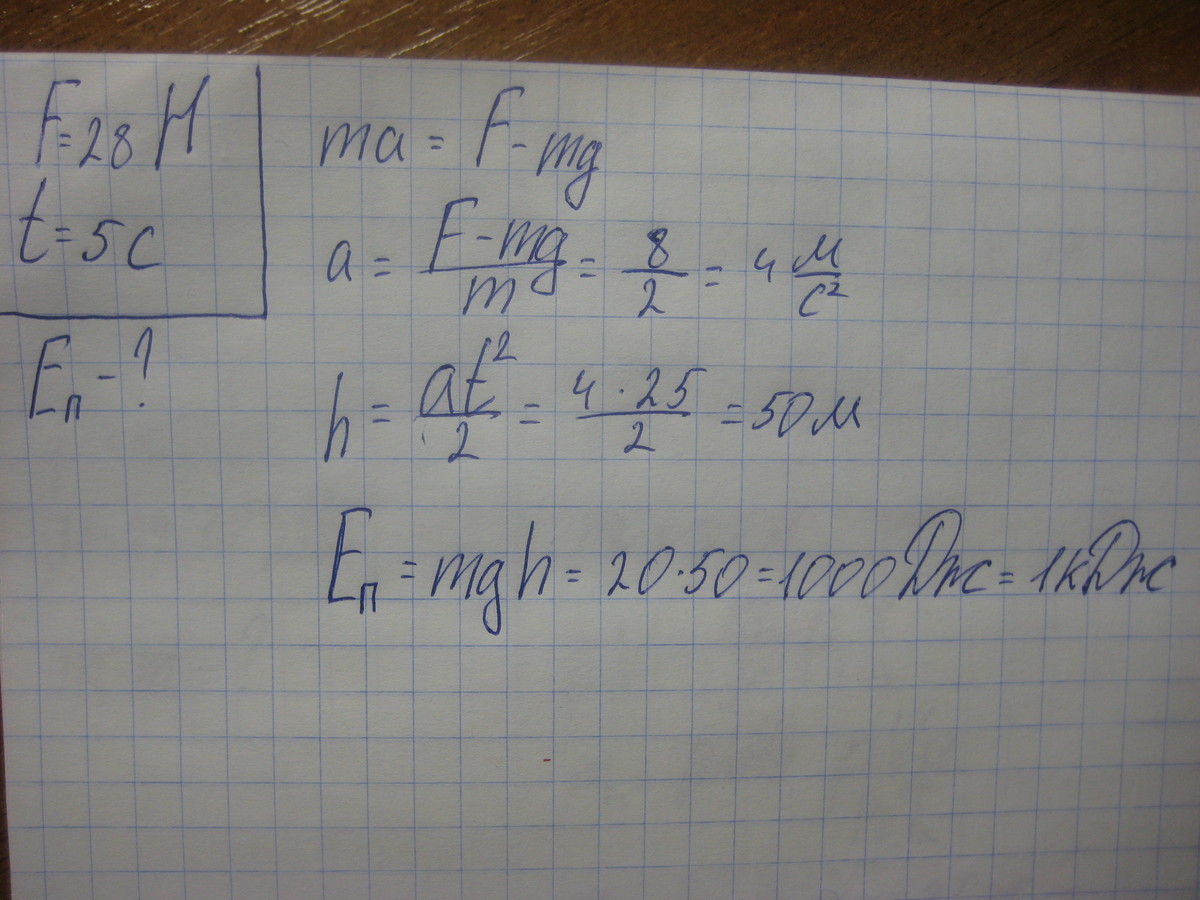 F=28 Н
t=5с
Eп-?
ma = F-mg
a = \frac{F-mg}{m} = \frac{8}{2} = 4 \frac{м}{с²}
h = \frac{at²}{2} = \frac{4·25}{2} = 50м
Eп = mgh = 20·50=1000Дж = 1кДж